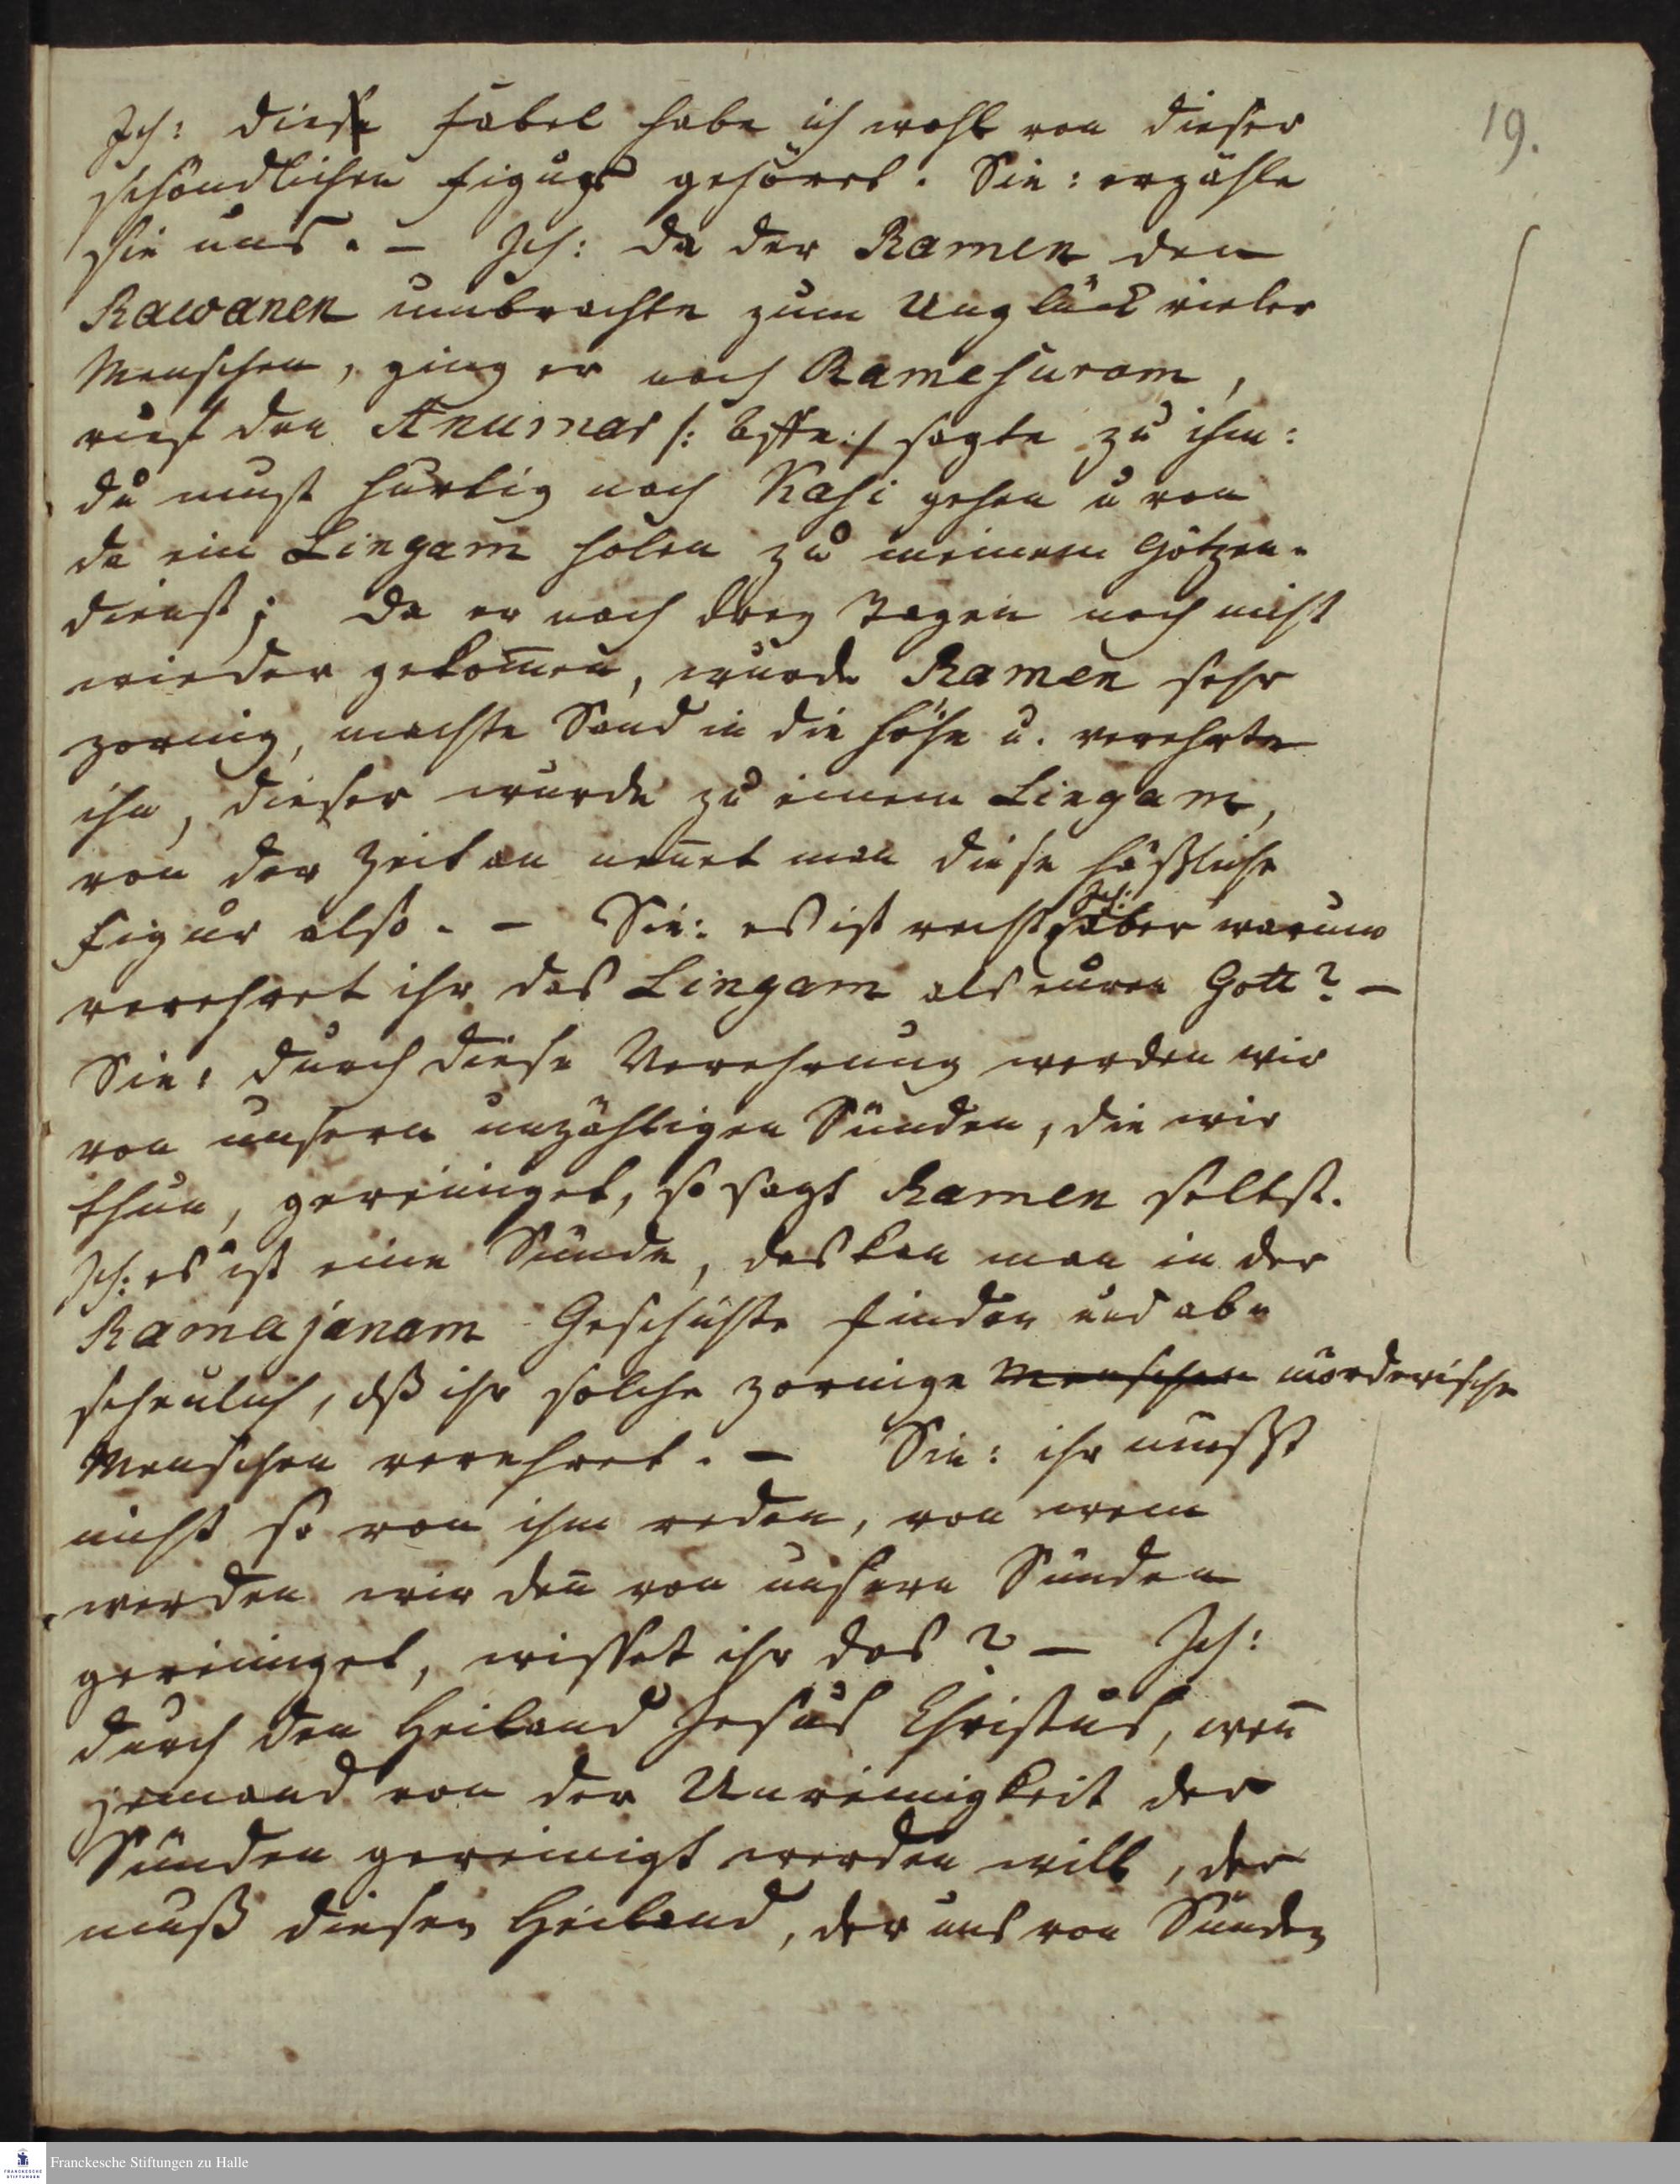 19.
Ich: diese Fabel habe ich wohl von dieser
schändlichen Figur gehöret. Sie: erzähle
sie uns. – Ich: da der Ramen den
Rawanen umbrachte zum Unglück vieler
Menschen, ging er nach Ramesuram,
rief den Anumar /: Affe :/ sagte zu ihm:
du must hurtig nach Kasi gehen u von
da ein Lingam holen zu meinem Götzen-
dienst; da er nach drey Tagen noch nicht
wieder gekom̄en, wurde Ramen sehr
zornig, machte Sand in die Höhe u. verehrte
ihn, dieser wurde zu einem Lingam,
von der Zeit an nen̄et man diese häßliche
Figur also. – Sie: es ist recht Ich: aber warum
verehret ihr das Lingam als euren Gott? –
Sie: durch diese Verehrung werden wir
von unsern unzähligen Sünden, die wir
thun, gereiniget, so sagt Ramen selbst.
Ich: es ist eine Sünde, das kan man in der
Ramajanam Geschichte finden und ab-
scheulich, dß ihr solche zornige Menschen mörderische
Menschen verehret. – Sie: ihr müsst
nicht so von ihm reden, von wem
werden wir den̄ von unsern Sünden
gereiniget, wisset ihr das? – Ich:
durch den Heiland Jesus Christus, wen̄
jemand von der Unreinigkeit der
Sünden gereinigt werden will, der
muß diesen Heiland, der uns von Sünden
Franckesche Stiftungen zu Halle
FRANCKESCHE
STIFTUNGEN